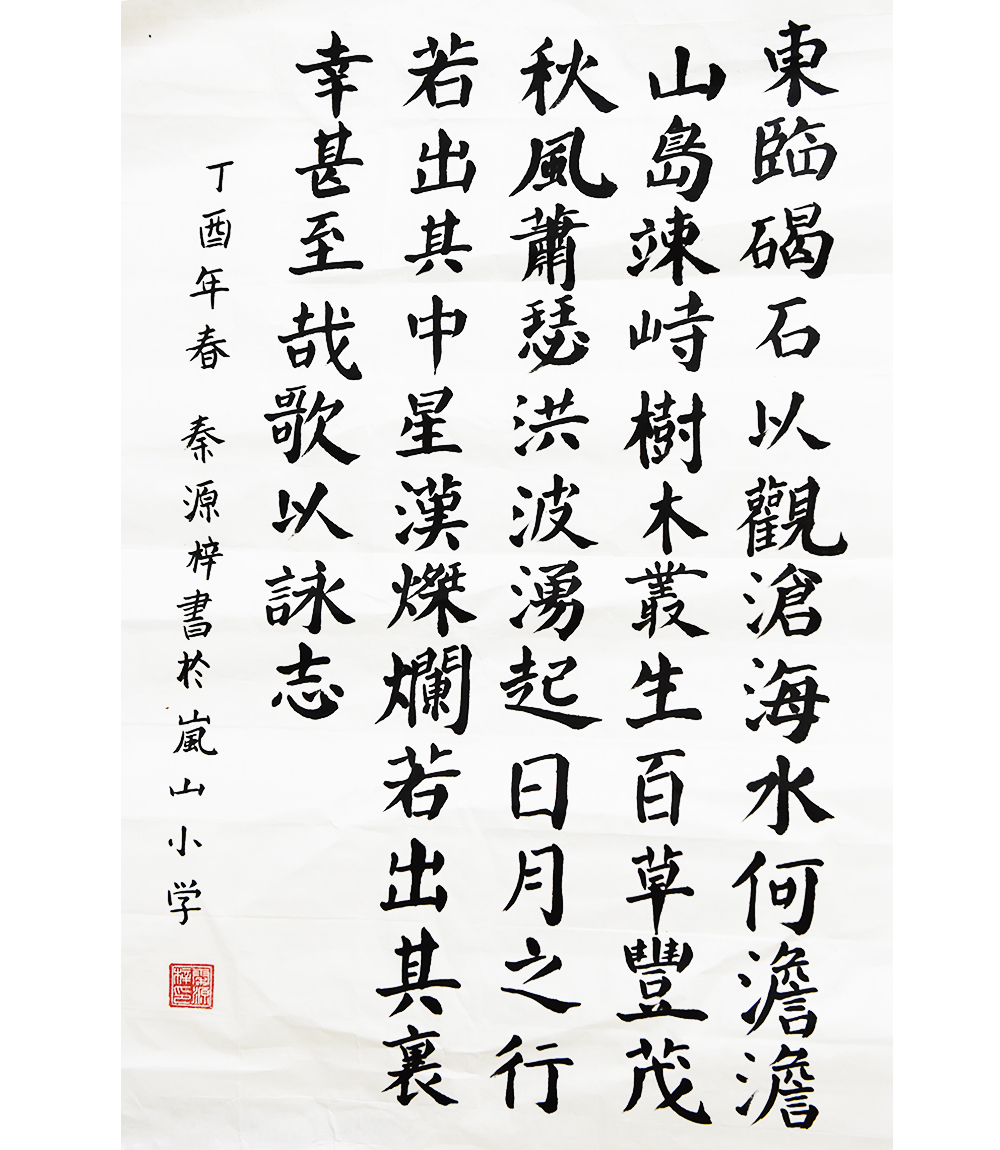 東臨碣石以觀滄海水何澹澹
山島竦峙樹木叢生百草豐茂
秋風蕭瑟洪波湧起日月之行
若出其中星漢燦爛若出其裏
幸甚至哉歌以詠志
丁酉年春 秦源梓書於嵐山小学